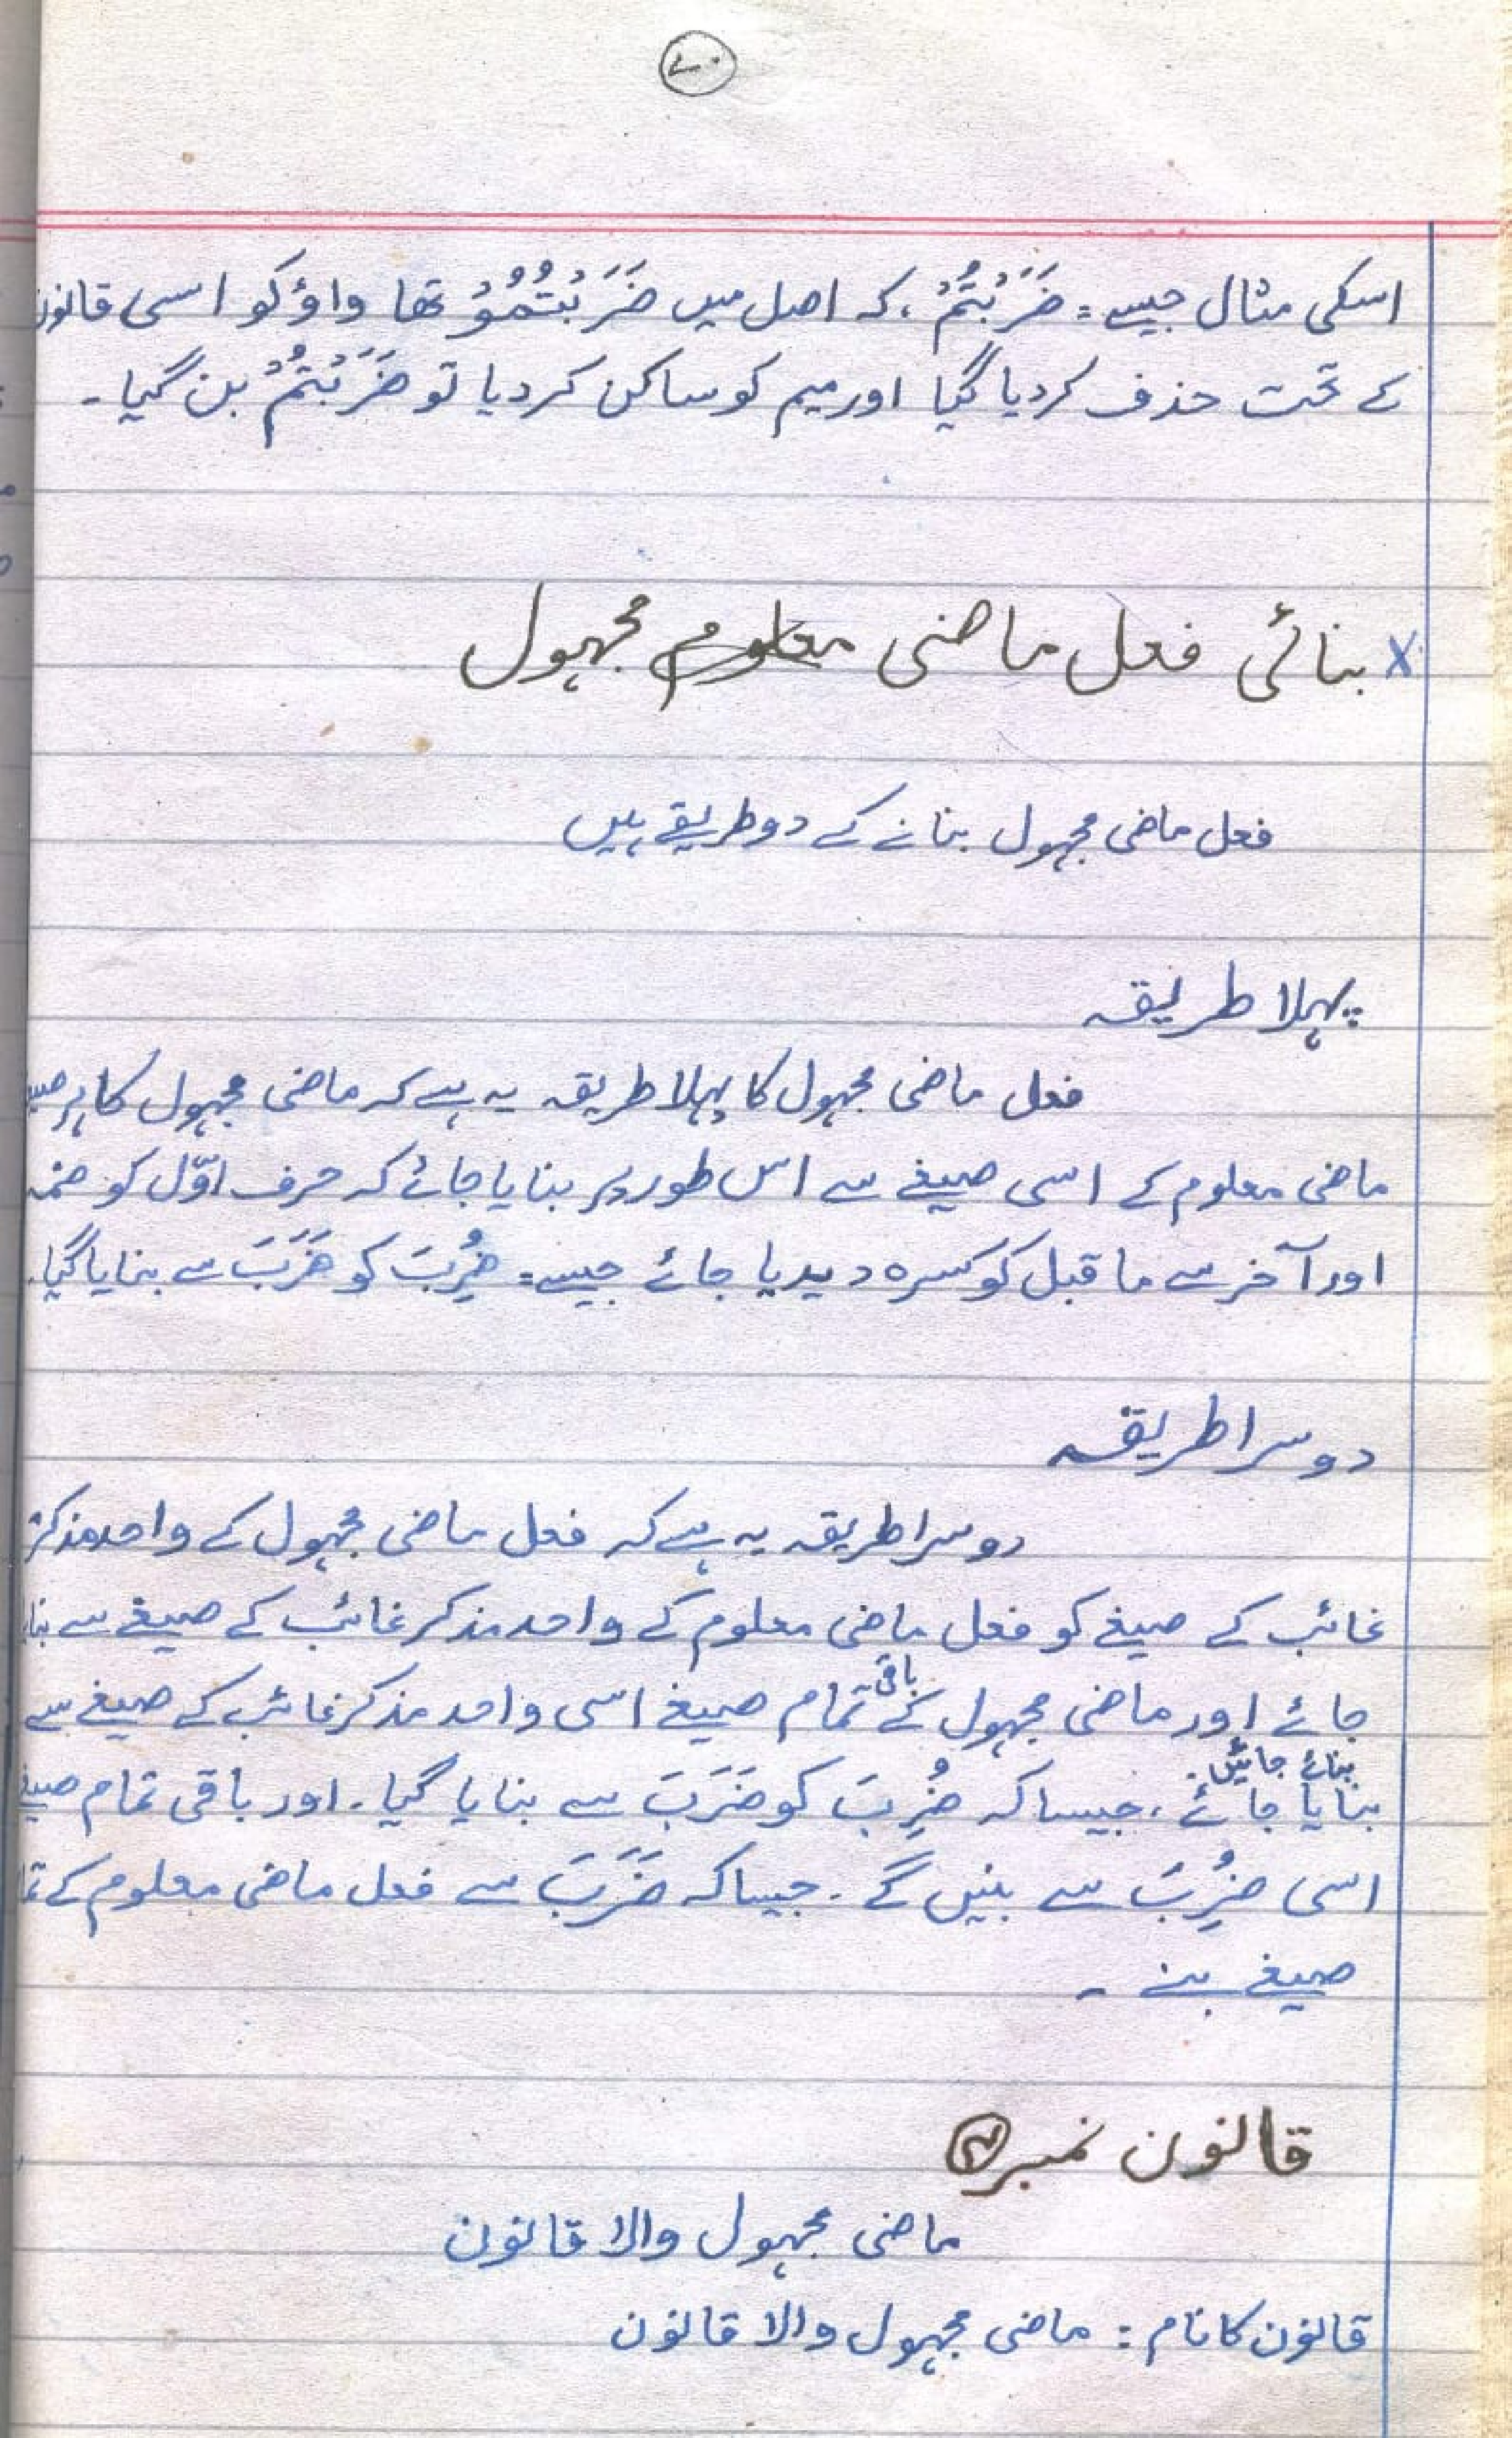 ۷۰
اسکی مثال جیسے = ضَرَبْتُمْ ، کہ اصل میں ضَرَبْتُمُوْ تھا واؤ کو اسی قانون
کے تحت حذف کردیا گیا اور میم کو ساکن کردیا تو ضَرَبْتُمْ بن گیا ۔
x بنائی فعل ماضی مجہول
فعل ماضی مجہول بنانے کے دو طریقے ہیں
پہلا طریقہ
فعل ماضی مجہول کا پہلا طریقہ یہ ہے کہ ماضی مجہول کا ہر
ماضی معلوم کے اسی صیغے سے اس طور پر بنایا جائے کہ حرف اوّل کو ضمہ
اور آخر سے ماقبل کو کسرہ دیدیا جائے جیسے = ضُرِبَ کو ضَرَبَ سے بنایا گیا.
دوسرا طریقہ
دوسرا طریقہ یہ ہے کہ فعل ماضی مجہول کے واحد مذکر
غائب کے صیغے کو فعل ماضی معلوم کے واحد مذکر غائب کے صیغے سے
جائے اور ماضی مجہول کے باقی تمام صیغے اسی واحد مذکر غائب کے صیغے سے
بنائے جائیں.
بنایا جائے ، جیسا کہ ضُرِبَ کو ضَرَبَ سے بنایا گیا . اور باقی تمام
اسی ضُرِبَ سے بنیں گے . جیسا کہ ضَرَبَ سے فعل ماضی معلوم کے
صیغے بنے ۔
قانون نمبر
ماضی مجہول والا قانون
قانون کا نام : ماضی مجہول والا قانون